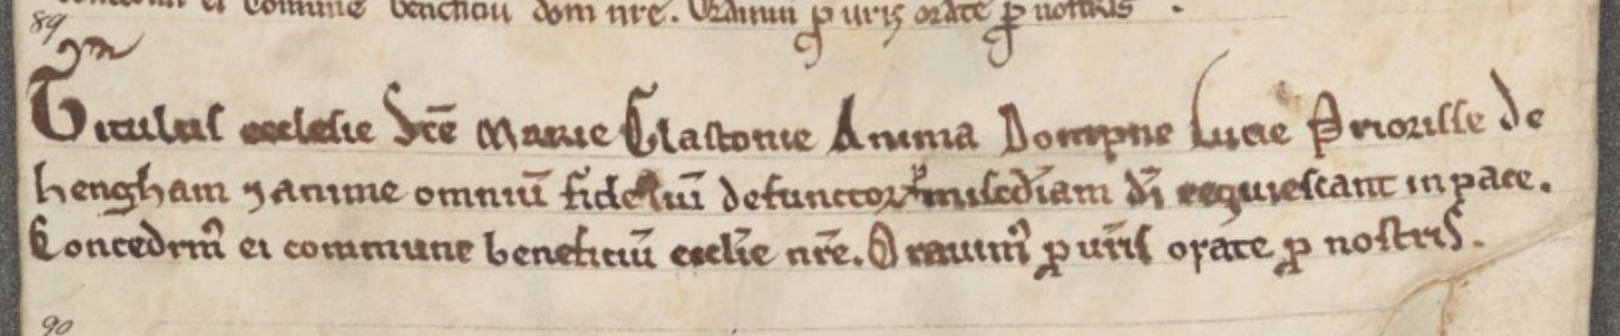 comune beneficiū dom nr̄e. Oramꝰ ꝓ ur̄is orate ꝓ nostris.
89
Titulus ecclesie Scē Marie Glastonie Anima Dompne Lucie Priorisse de
hengham ⁊ anime omniū fideliū defunctoꝝ ꝑ misc̄diam dī requiescant in pace.
Concedimꝰ ei commune beneficiū eccl̄ie nr̄e. Orauimꝰ ꝓ ur̄is orate ꝓ nostris.
90